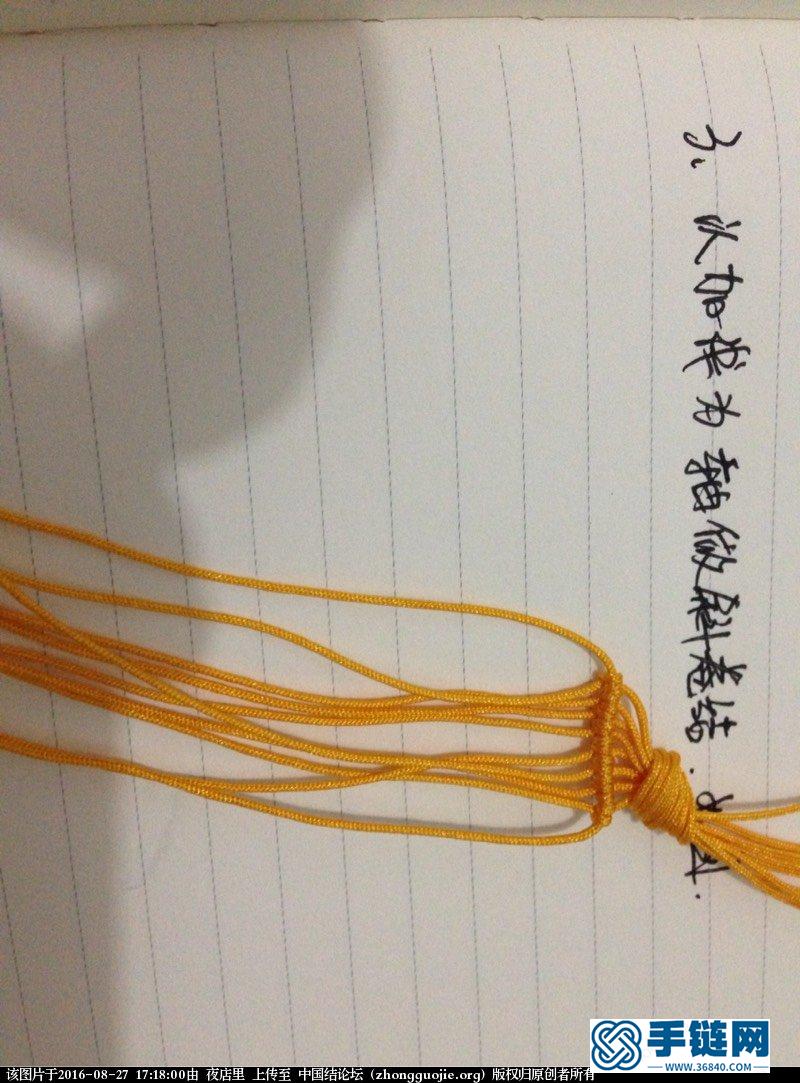 3、以加线为轴做斜卷结.如图.
手链网
www.36840.com
该图片于2016-08-27 17:18:00由 夜店里 上传至 中国结论坛 (zhongguojie.org) 版权归原创者所有